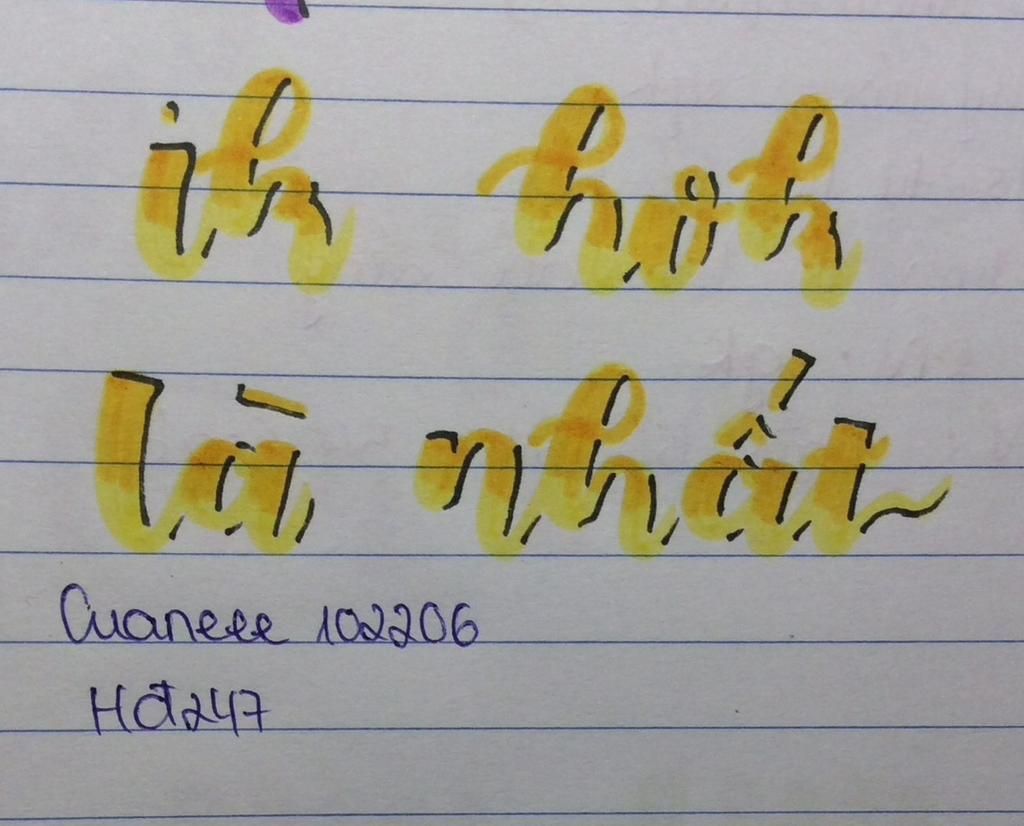 ih hoh
là nhất
Cuaneee 102206
Hđ247